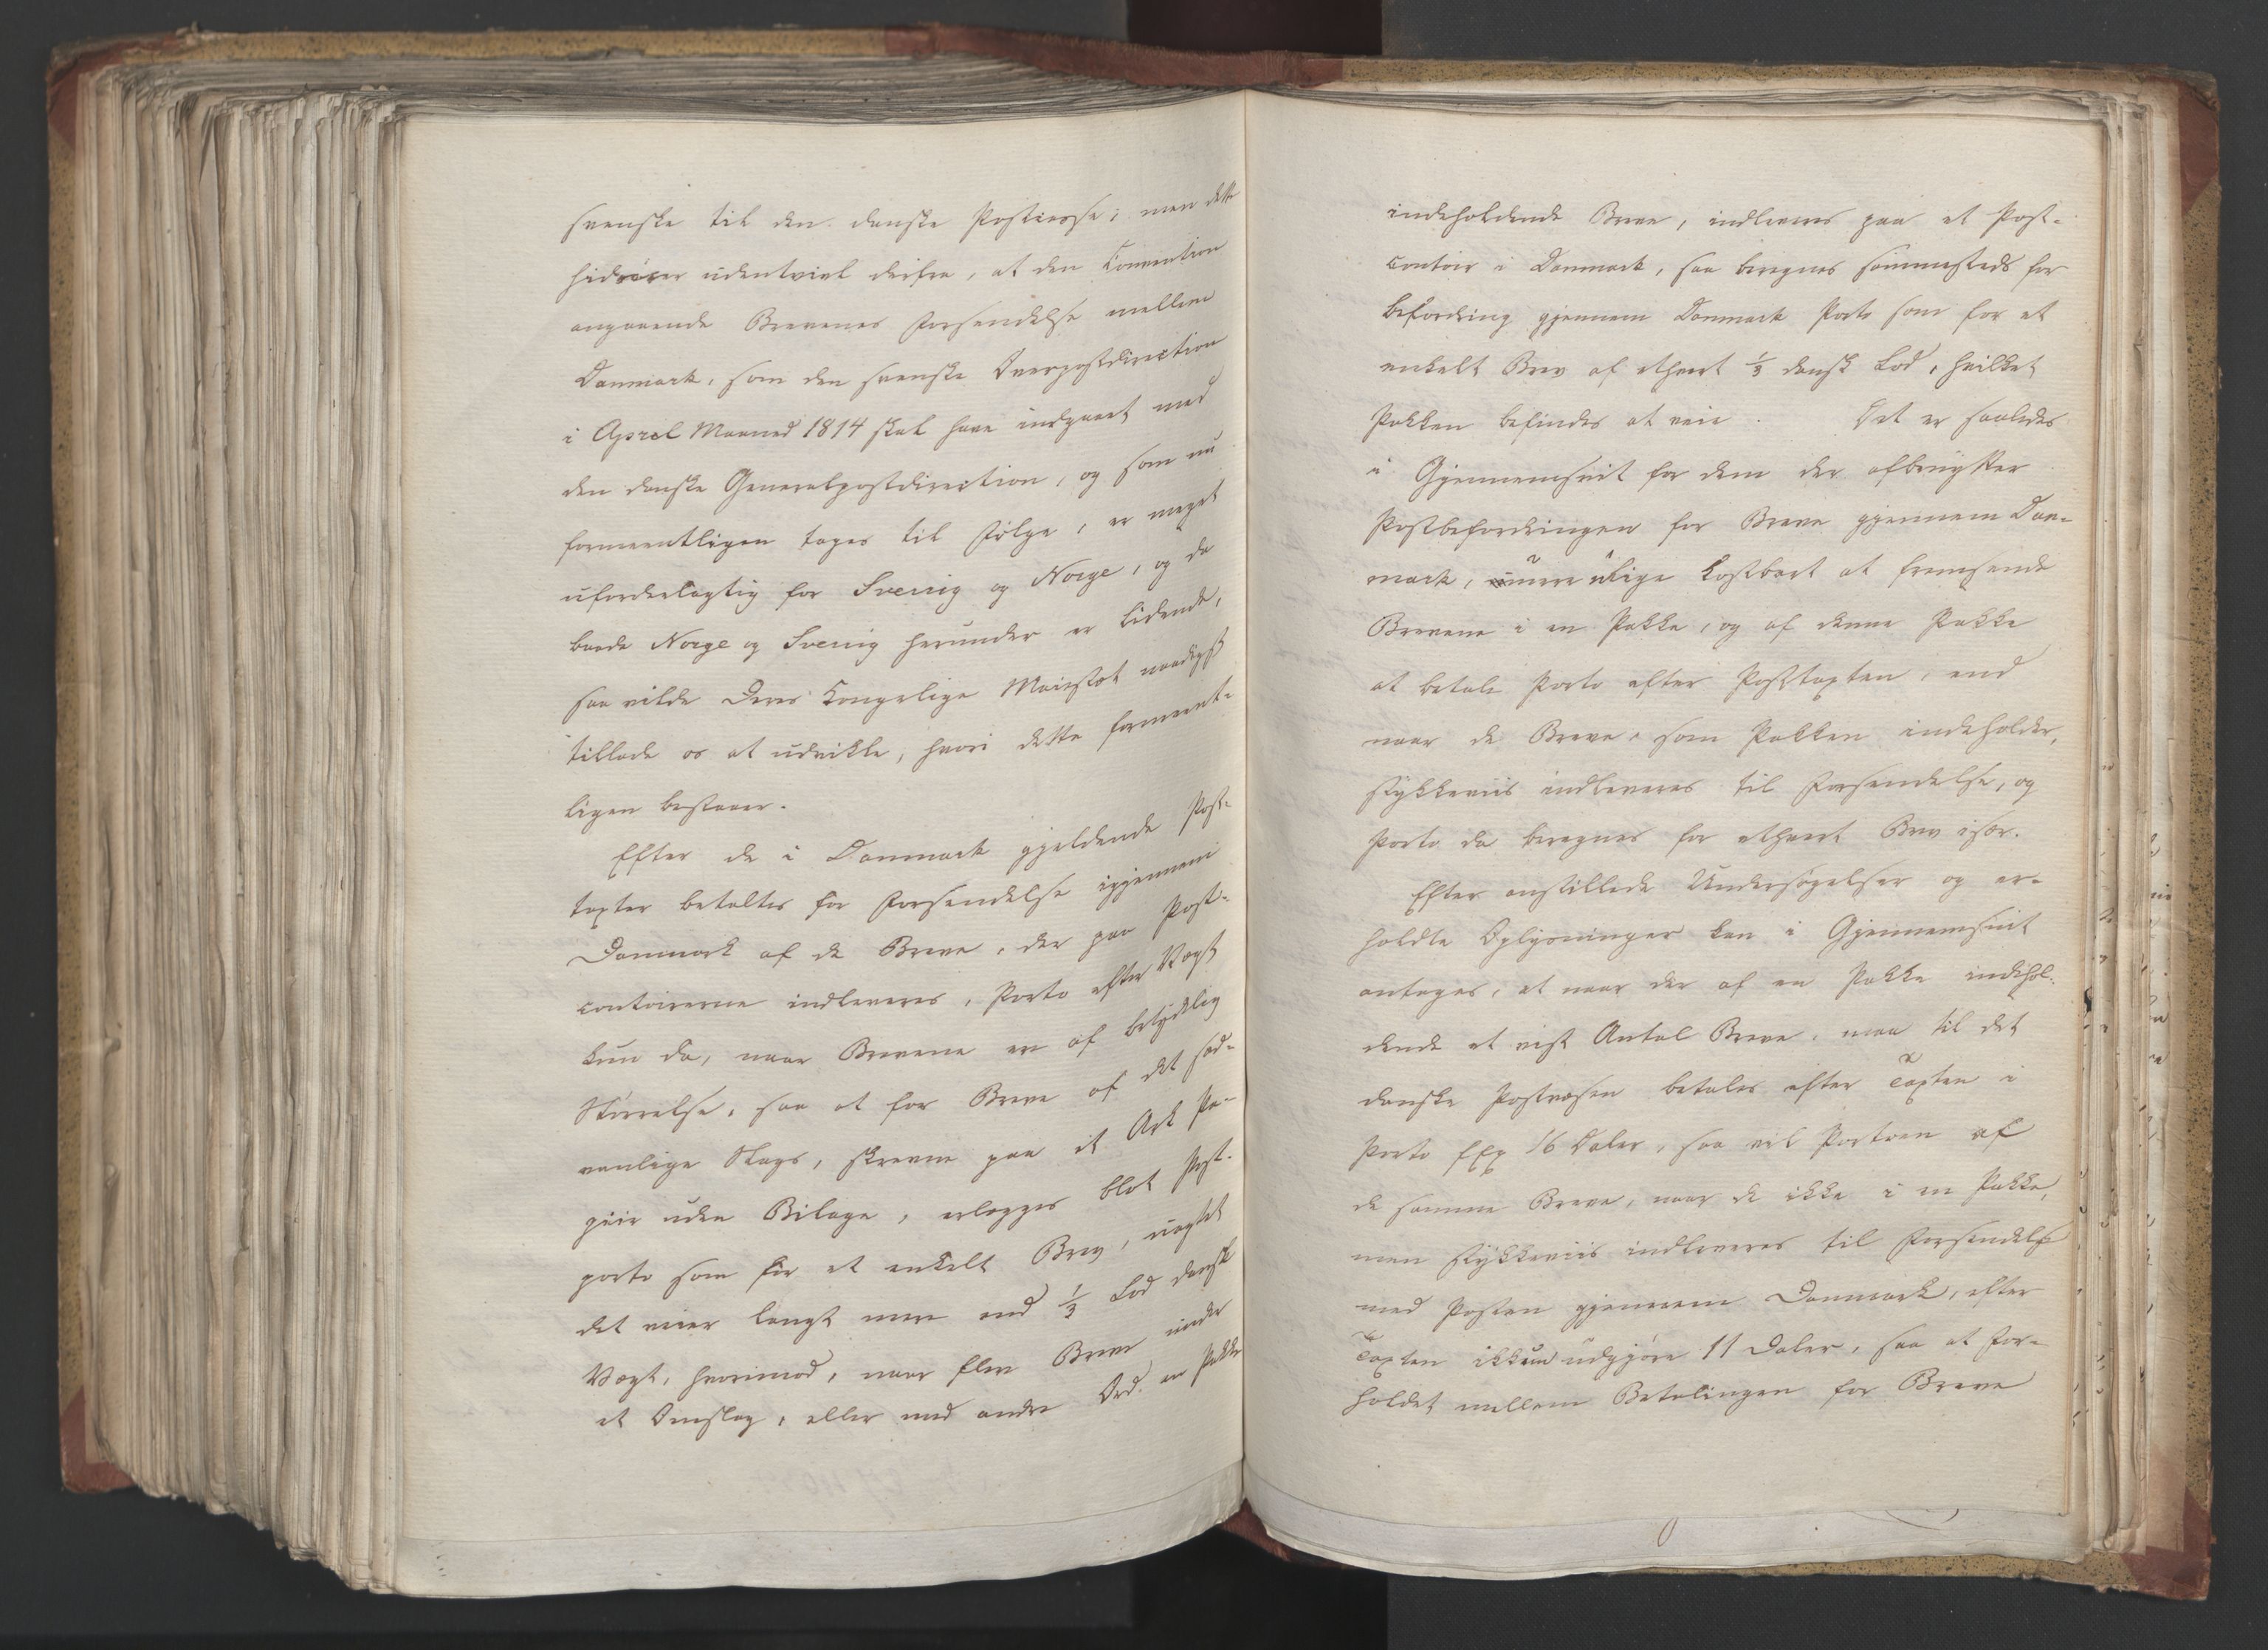 svenske til den danske Postcasse; men dette
hidrører udentvivl deraf, at den Convention
angaaende Brevenes Forsendelse mellem
Danmark, som den svenske Overpostdirection
i April Maaned 1814 skal have indgaaet med
den danske Generalpostdirection, og som nu
formeentligen tages til Følge, er meget
ufordelagtig for Sverrig og Norge, og da
baade Norge og Sverrig herunder er lidende,
saa vilde Deres Kongelige Majestæt naadigst
tillade os at udvikle, hvori dette formeent-
ligen bestaaer.
Efter de i Danmark gjeldende Post-
taxter betaltes for Forsendelse igjennem
Danmark af de Breve, der paa Post-
contoirerne indleveres, Porto efter Vægt
kun da, naar Brevene er af betydelig
Størrelse, saa at for Breve af det sæd-
vanlige Slags, skrevne paa et Ark Pa-
piir uden Bilage, erlægges blot Post-
porto som for et enkelt Brev, uagtet
det veier langt mere end 1/3 Lod dansk
Vægt, hvorimod, naar flere Breve under
et Omslag, eller med andre Ord en Pakke
indeholdende Breve, indleveres paa et Post-
contoir i Danmark, saa beregnes sammesteds for
Befordring gjennem Danmark Porto som for et
enkelt Brev af ethvert 1/3 dansk Lod, hvilket
Pakken befindes at veie. Det er saaledes
i Gjennemsnit for dem der afbenytter
Postbefordringen for Breve gjennem Dan-
mark, ulige kostbart at fremsende
Brevene i en Pakke, og af denne Pakke
at betale Porto efter Posttaxten, end
naar de Breve, som Pakken indeholder,
stykkeviis indleveres til Forsendelse, og
Porto da beregnes for ethvert Brev især.
Efter anstillede Undersøgelser og er-
holdte Oplysninger kan i Gjennemsnit
antages, at naar der af en Pakke indehol-
dende et vist Antal Breve, maa til det
danske Postvæsen betales efter Taxten i
Porto f Ex 16 Daler, saa vil Portoen af
de samme Breve, naar de ikke i en Pakke,
men stykkeviis indleveres til Forsendelse
med Posten gjennem Danmark, efter
Taxten ikkun udgjøre 11 Daler, saa at For-
holdet mellem Betalingen for Breve